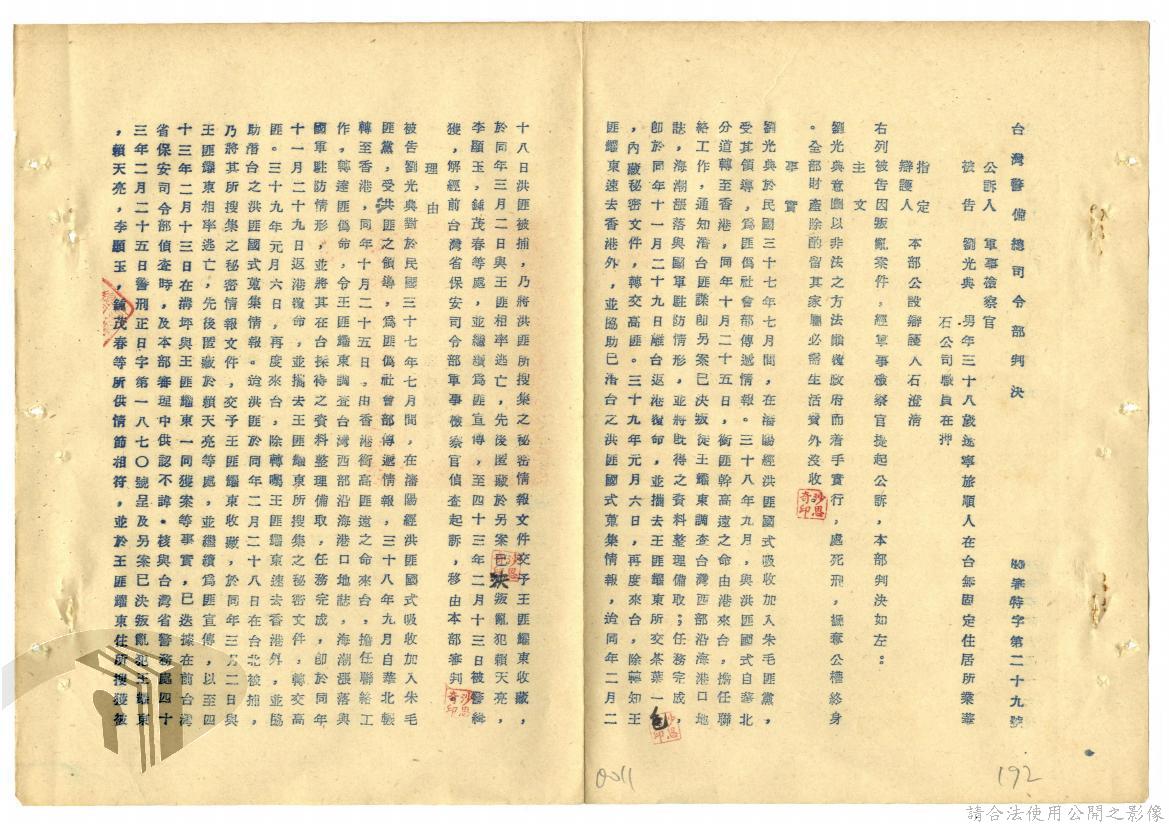 台灣警備總司令部判決
審特字第二十九號
公訴人　軍事檢察官
被　告　劉光典　男年三十八歲遼寧旅順人在台無固定住居所業華
石公司職員在押
指定
辯護人　本部公設辯護人石澄清
右列被告因叛亂案件，經軍事檢察官提起公訴，本部判決如左：
主　文
劉光典意圖以非法之方法顛覆政府而着手實行，處死刑，褫奪公權終身
。全部財產除酌留其家屬必需生活費外沒收。
事　實
劉光典於民國三十七年七月間，在瀋陽經洪匪國式吸收加入朱毛匪黨，
受其領導，爲匪僞社會部傳遞情報。三十八年九月，與洪匪國式自華北
分道轉至香港，同年十月二十五日，銜匪幹高遠之命由港來台，擔任聯
絡工作，通知潛台匪諜即另案已決叛徒王耀東調查台灣西部沿海港口地
誌，海潮漲落與國軍駐防情形，並將既得之資料整理備取；任務完成，
即於同年十一月二十九日離台返港復命，並攜去王匪耀東所交茶葉一包
，內藏秘密文件，轉交高匪。三十九年元月六日，再度來台，除轉知王
匪耀東速去香港外，並協助已潛台之洪匪國式蒐集情報，迨同年二月二
十八日洪匪被捕，乃將洪匪所搜集之秘密情報文件交予王匪耀東收藏，
於同年三月二日與王匪相率逃亡，先後匿藏於另案已決叛亂犯賴天亮，
李顯玉，鍾茂春等處，並繼續爲匪宣傳，至四十三年二月十三日被警緝
獲，解經前台灣省保安司令部軍事檢察官偵查起訴，移由本部審判
理　由
被告劉光典對於民國三十七年七月間，在瀋陽經洪匪國式吸收加入朱毛
匪黨，受洪匪之領導，爲匪僞社會部傳遞情報，三十八年九月自華北輾
轉至香港，同年十月二十五日，由香港銜高匪遠之命來台，擔任聯絡工
作，轉達匪僞命，令王匪耀東調查台灣西部沿海港口地誌，海潮漲落與
國軍駐防情形，並將其在台採待之資料整理備取，任務完成，即於同年
十一月二十九日返港復命，並攜去王匪耀東所搜集之秘密文件，轉交高
匪。三十九年元月六日，再度來台，除轉囑王匪耀東速去香港外，並協
助潛台之洪匪國式蒐集情報。迨洪匪於同年二月二十八日在台北被捕，
乃將其所搜集之秘密情報文件，交予王匪耀東收藏，於同年三月二日與
王匪耀東相率逃亡，先後匿藏於賴天亮等處，並繼續爲匪宣傳，以至四
十三年二月十三日在溝坪與王匪耀東一同獲案等事實，已迭據在前台灣
省保安司令部偵查時，及本部審理中供認不諱。核與台灣省警務處四十
三年二月二十五日警刑正日字第一八七〇號呈及另案已決叛亂犯王耀東
，賴天亮，李顯玉，鍾茂春等所供情節相符，並於王匪耀東住所搜獲被
0011
192
請合法使用公開之影像